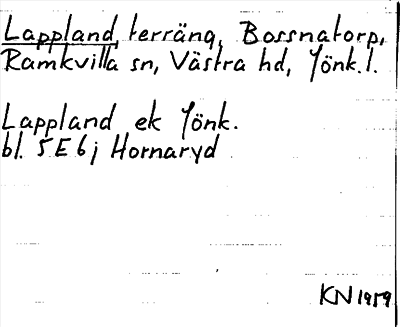 Lappland, terräng, Bossnatorp,
Ramkvilla sn, Västra hd, Jönk. l.
Lappland ek Jönk.
bl. 5E6j Hornaryd
KN 1959